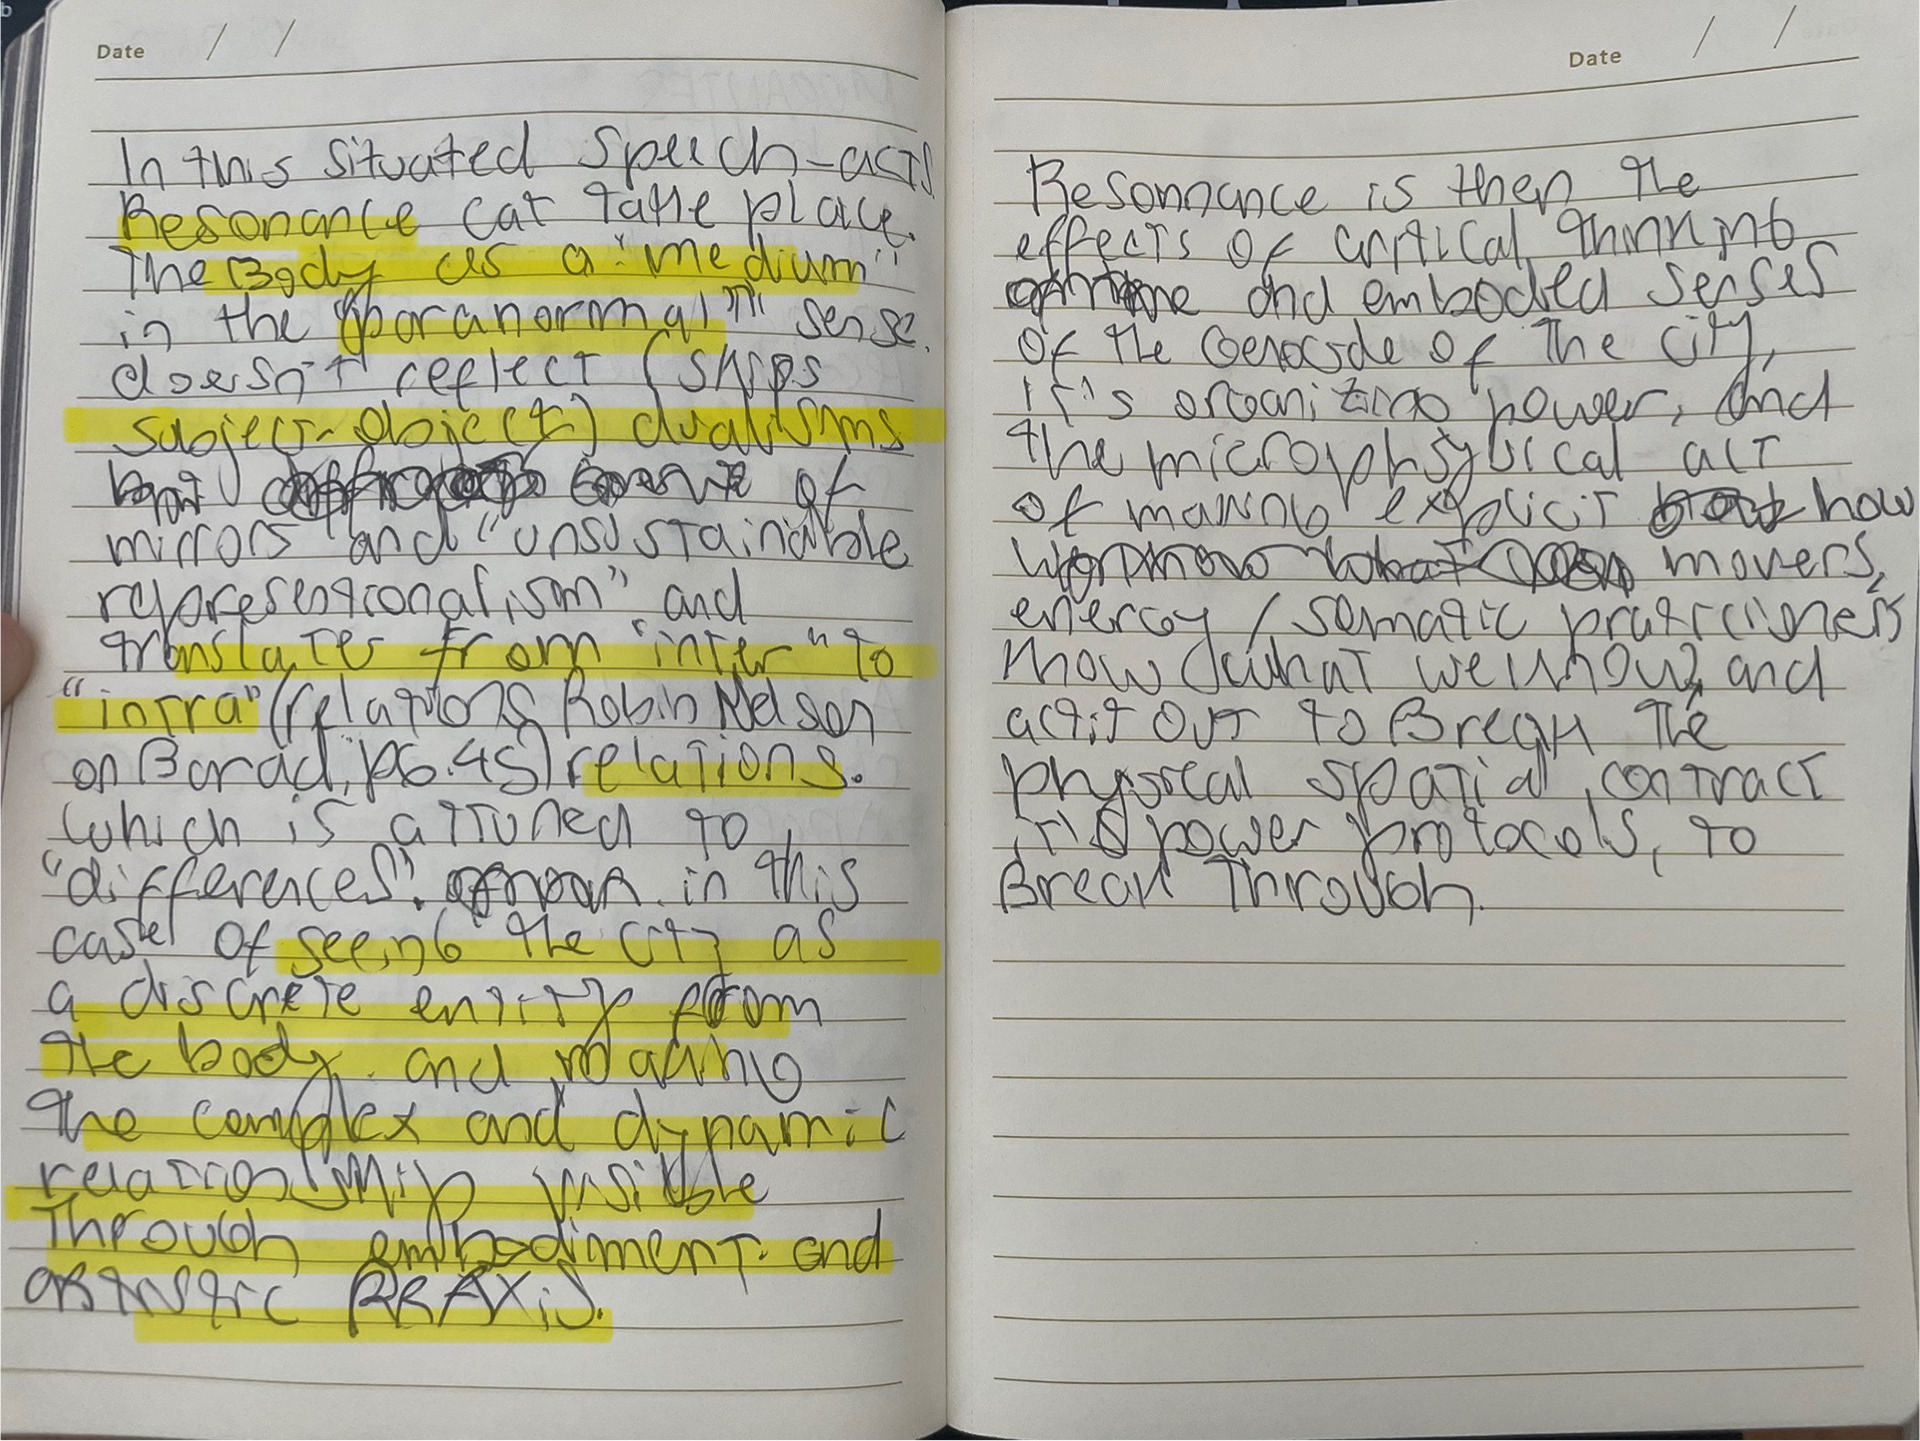 Date / /
In this situated speech-acts
Resonance cat take place.
The Body as a "medium"
in the "paranormal" sense.
doesn't reflect (skips
subject-object) dualisms
but of
mirrors and "unsustainable
representionalism" and
translates from "inter" to
"intra" (relations Robin Nelson
on Barad, pg. 45) relations.
which is attuned to
"differences". in this
case of seeing the city as
a discrete entity from
the body. and making
the complex and dynamic
relationship visible
Through embodiment and
artistic PRAXiS.
Date / /
Resonnance is then the
effects of critical thinking
and embodied senses
of the genocide of the city,
it's organizing power, and
the microphysical act
of making explicit how
movers,
energy / somatic practicioners
know (what we know) and
act it out to Break the
physical spatial contract
it's power protocols, to
Break Through.